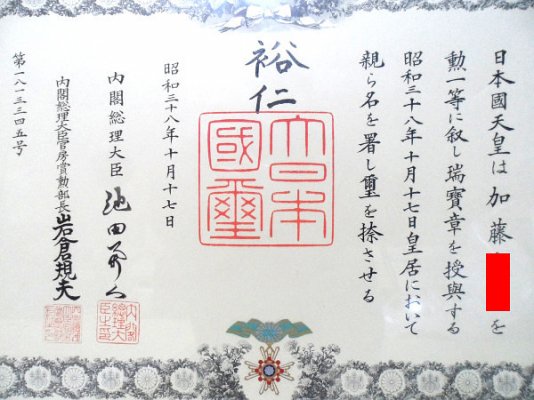 日本國天皇は加藤を
勲一等に叙し瑞寶章を授與する
昭和三十八年十月十七日皇居において
親ら名を署し璽を捺させる
裕仁
大日本
國璽
昭和三十八年十月十七日
内閣総理大臣 池田勇人
内閣
総理大
臣之印
内閣総理大臣官房賞勲部長 岩倉規夫
第一八一三三四五号